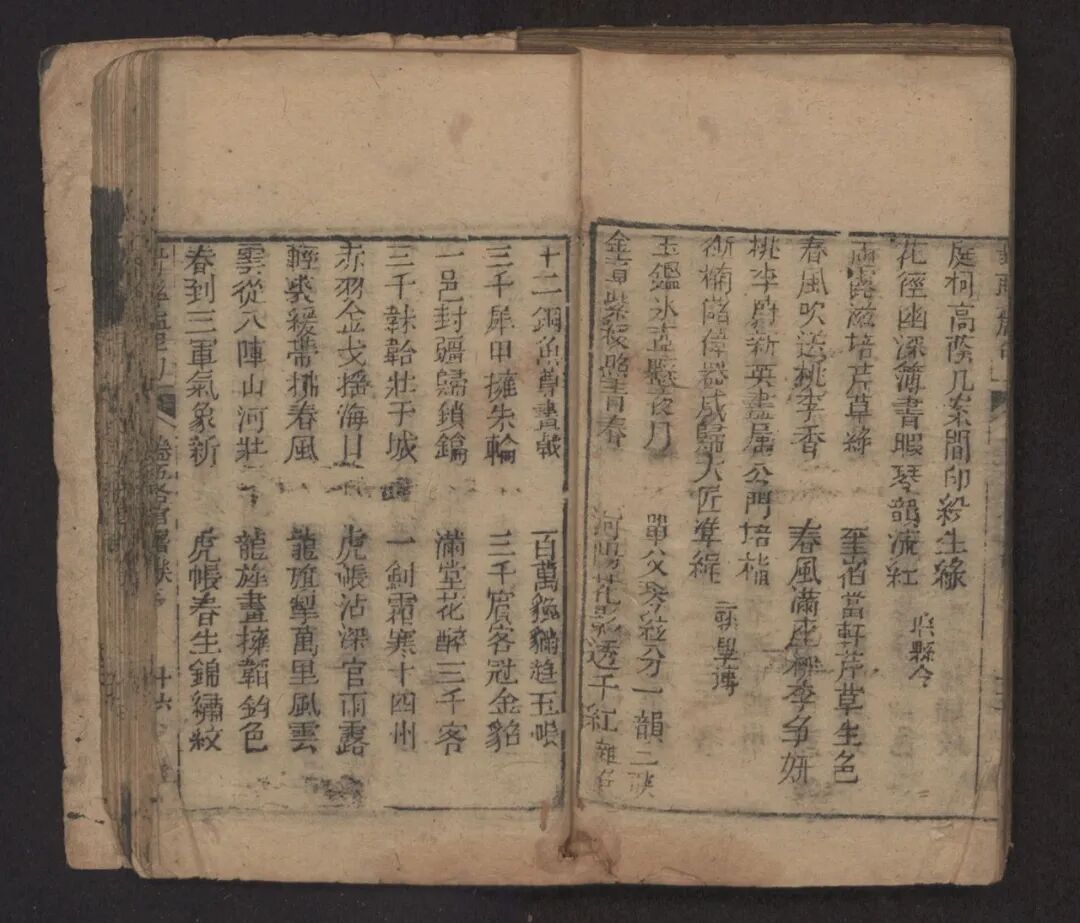 庭柯高蔭几案間印紋生綠
花徑幽深簿書暇琴韻流紅 縣令
雨露滋培芹草綠 當軒芹草生色
春風吹送桃李香 春風滿座桃李爭妍
桃李蔚新英盡屬公門培植
衡楠儲偉器咸歸大匠準繩
玉鑑冰壺懸夜月 單父琴絃分一韻
金章紫綬照青春 河陽花影透千紅
十二銅魚尊畫戟 百萬貔貅趨玉帳
三千犀甲擁朱輪 三千賓客冠金貂
一邑封疆歸鎖鑰 滿堂花醉三千客
三千韎韐壯干城 一劍霜寒十四州
赤羽金戈搖海日 虎帳沾深官雨露
輕裘緩帶拂春風 龍旗掣萬里風雲
雲從八陣山河壯 龍旌畫擁韜鈐色
春到三軍氣象新 虎帳春生錦繡紋
卷五